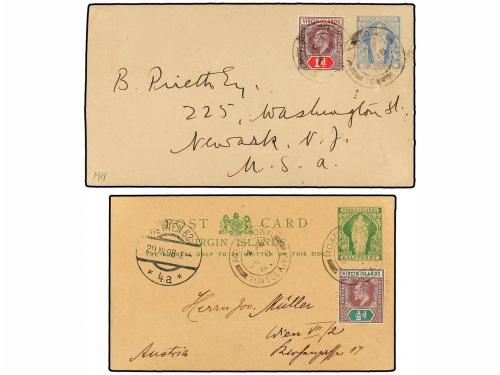 VIRGIN ISLANDS
1d
B. Prietto Esq.
225, Washington St.
Newark, N. J.
U. S. A.
1911
POST CARD
VIRGIN ISLANDS
TO BE WRITTEN ON THIS SIDE
VIRGIN ISLANDS
HALFPENNY
WIEN
29.XII.08
* 4a *
ROAD TOWN
TORTOLA
VIRGIN ISLANDS
½d
Herrn Jos. Müller
Wien
Austria